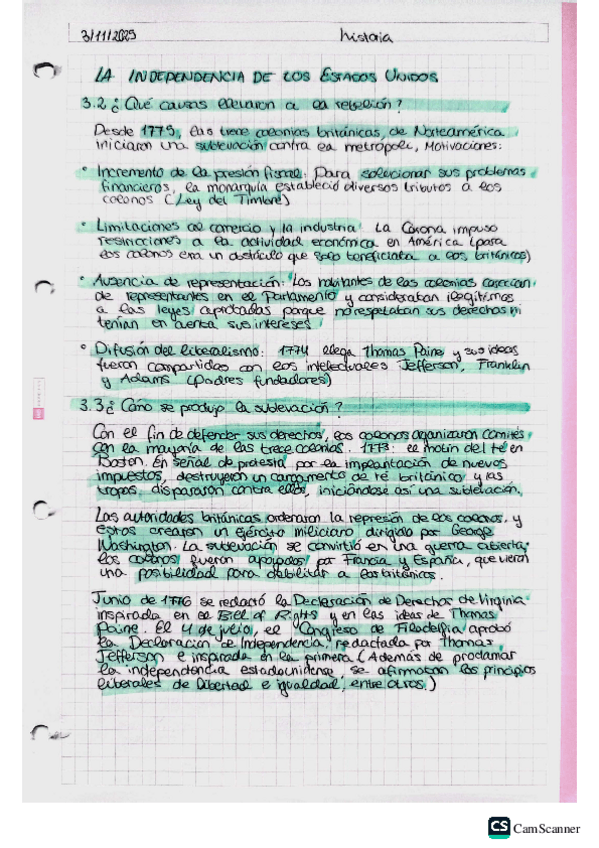 3/11/2025 historia
LA INDEPENDENCIA DE LOS ESTADOS UNIDOS
3.2 ¿Qué causas llevaron a la rebelión?
Desde 1775, las trece colonias británicas, de Norteamérica
iniciaron una sublevación contra la metrópoli, Motivaciones:
• Incremento de la presión fiscal: Para solucionar sus problemas
financieros, la monarquía estableció diversos tributos a los
colonos (Ley del Timbre)
• Limitaciones al comercio y la industria: La Corona impuso
restricciones a la actividad económica en América (para
los colonos era un obstáculo que solo beneficiaba a los británicos)
• Ausencia de representación: Los habitantes de las colonias carecían
de representantes en el Parlamento y consideraban ilegítimas
a las leyes aprobadas porque no respetaban sus derechos ni
tenían en cuenta sus intereses
• Difusión del liberalismo: 1774 llega Thomas Paine y sus ideas
fueron compartidas con los intelectuales Jefferson, Franklin
y Adams (padres fundadores)
3.3 ¿Cómo se produjo la sublevación?
Con el fin de defender sus derechos, los colonos organizaron comités
con la mayoría de las trece colonias. 1773: el motín del té en
Boston. En señal de protesta por la implantación de nuevos
impuestos, destruyeron un cargamento de té británico y las
tropas dispararon contra ellos, iniciándose así una sublevación.
Las autoridades británicas ordenaron la represión de los colonos, y
estos crearon un ejército miliciano dirigido por George
Washington. La sublevación se convirtió en una guerra abierta,
los colonos fueron apoyados por Francia y España, que vieron
una posibilidad para debilitar a los británicos.
Junio de 1776 se redactó la Declaración de Derechos de Virginia
inspirada en el Bill of Rights y en las ideas de Thomas
Paine. El 4 de julio, el Congreso de Filadelfia aprobó
la Declaración de Independencia, redactada por Thomas
Jefferson e inspirada en la primera (Además de proclamar
la independencia estadounidense, se afirmaban los principios
liberales de libertad e igualdad, entre otros.)
CS CamScanner